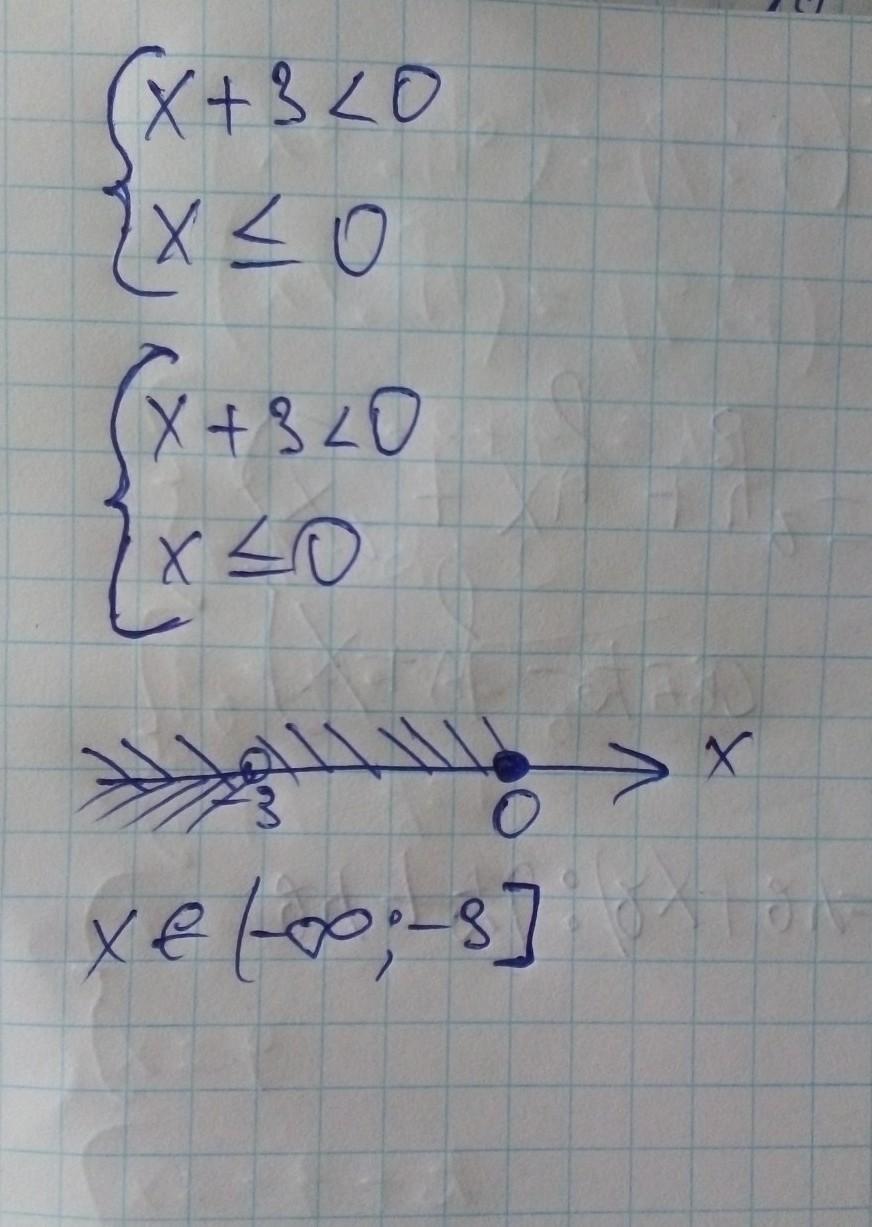 x + 3 < 0
x ≤ 0
x + 3 < 0
x ≤ 0
x
-3
0
x ∈ (-∞; -3]